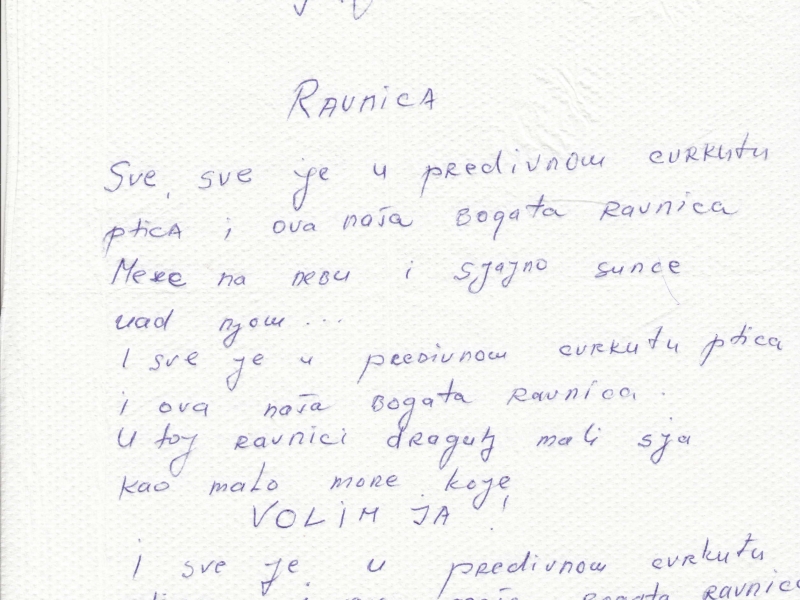 RAVNICA
Sve, sve je u predivnom cvrkutu
ptica i ova naša bogata ravnica
na nebu i sjajno sunce
nad njom...
I sve je u predivnom cvrkutu ptica
i ova naša bogata ravnica.
U toj ravnici dragulj mali sja
kao malo more koje
VOLIM JA!
I sve je u predivnom cvrkutu
bogata ravnica